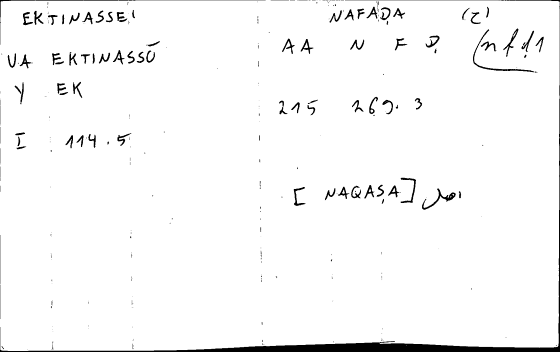 EKTINASSEI
UA EKTINASSŌ
Y EK
I 114.5
NAFAḌA (2)
AA N F Ḍ (nfḍ1
215 269.3
[NAQAṢA] اصل